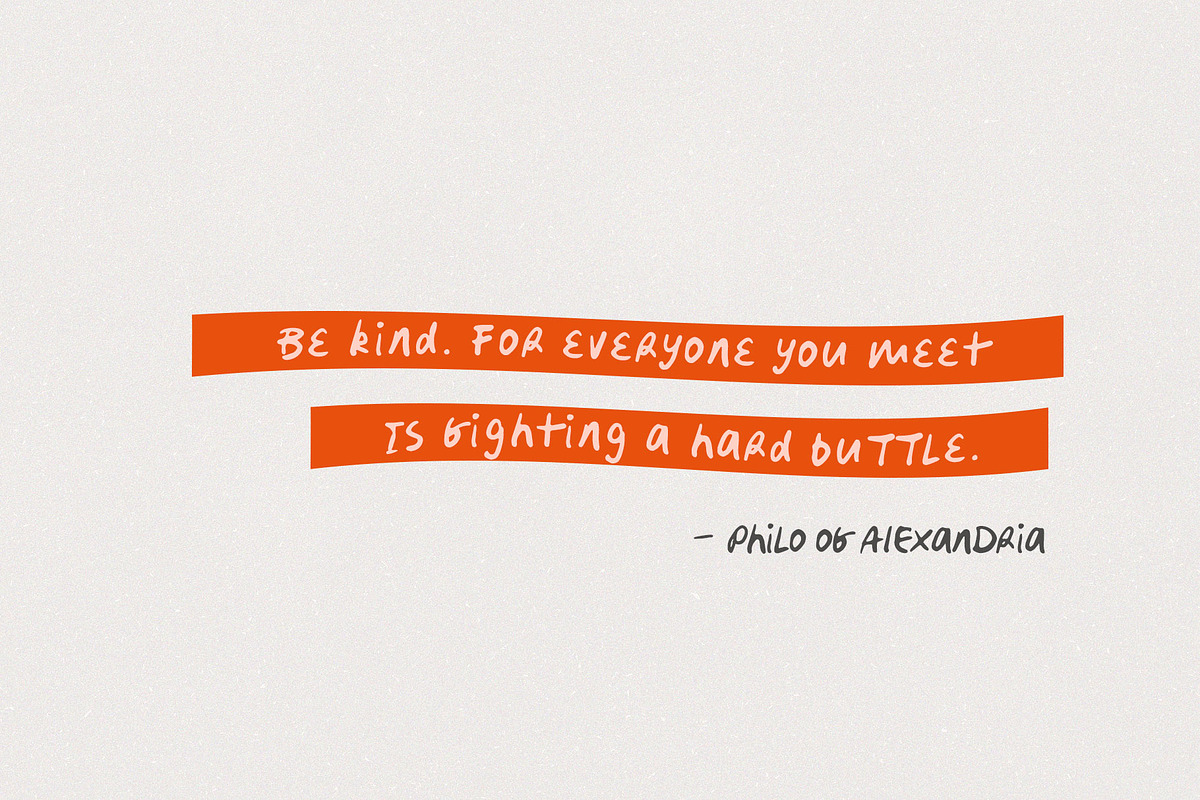 BE kind. FOR EVERYONE you MEET
IS fighting a haRd buTTLE.
– PhiLO Of AlExanDRia